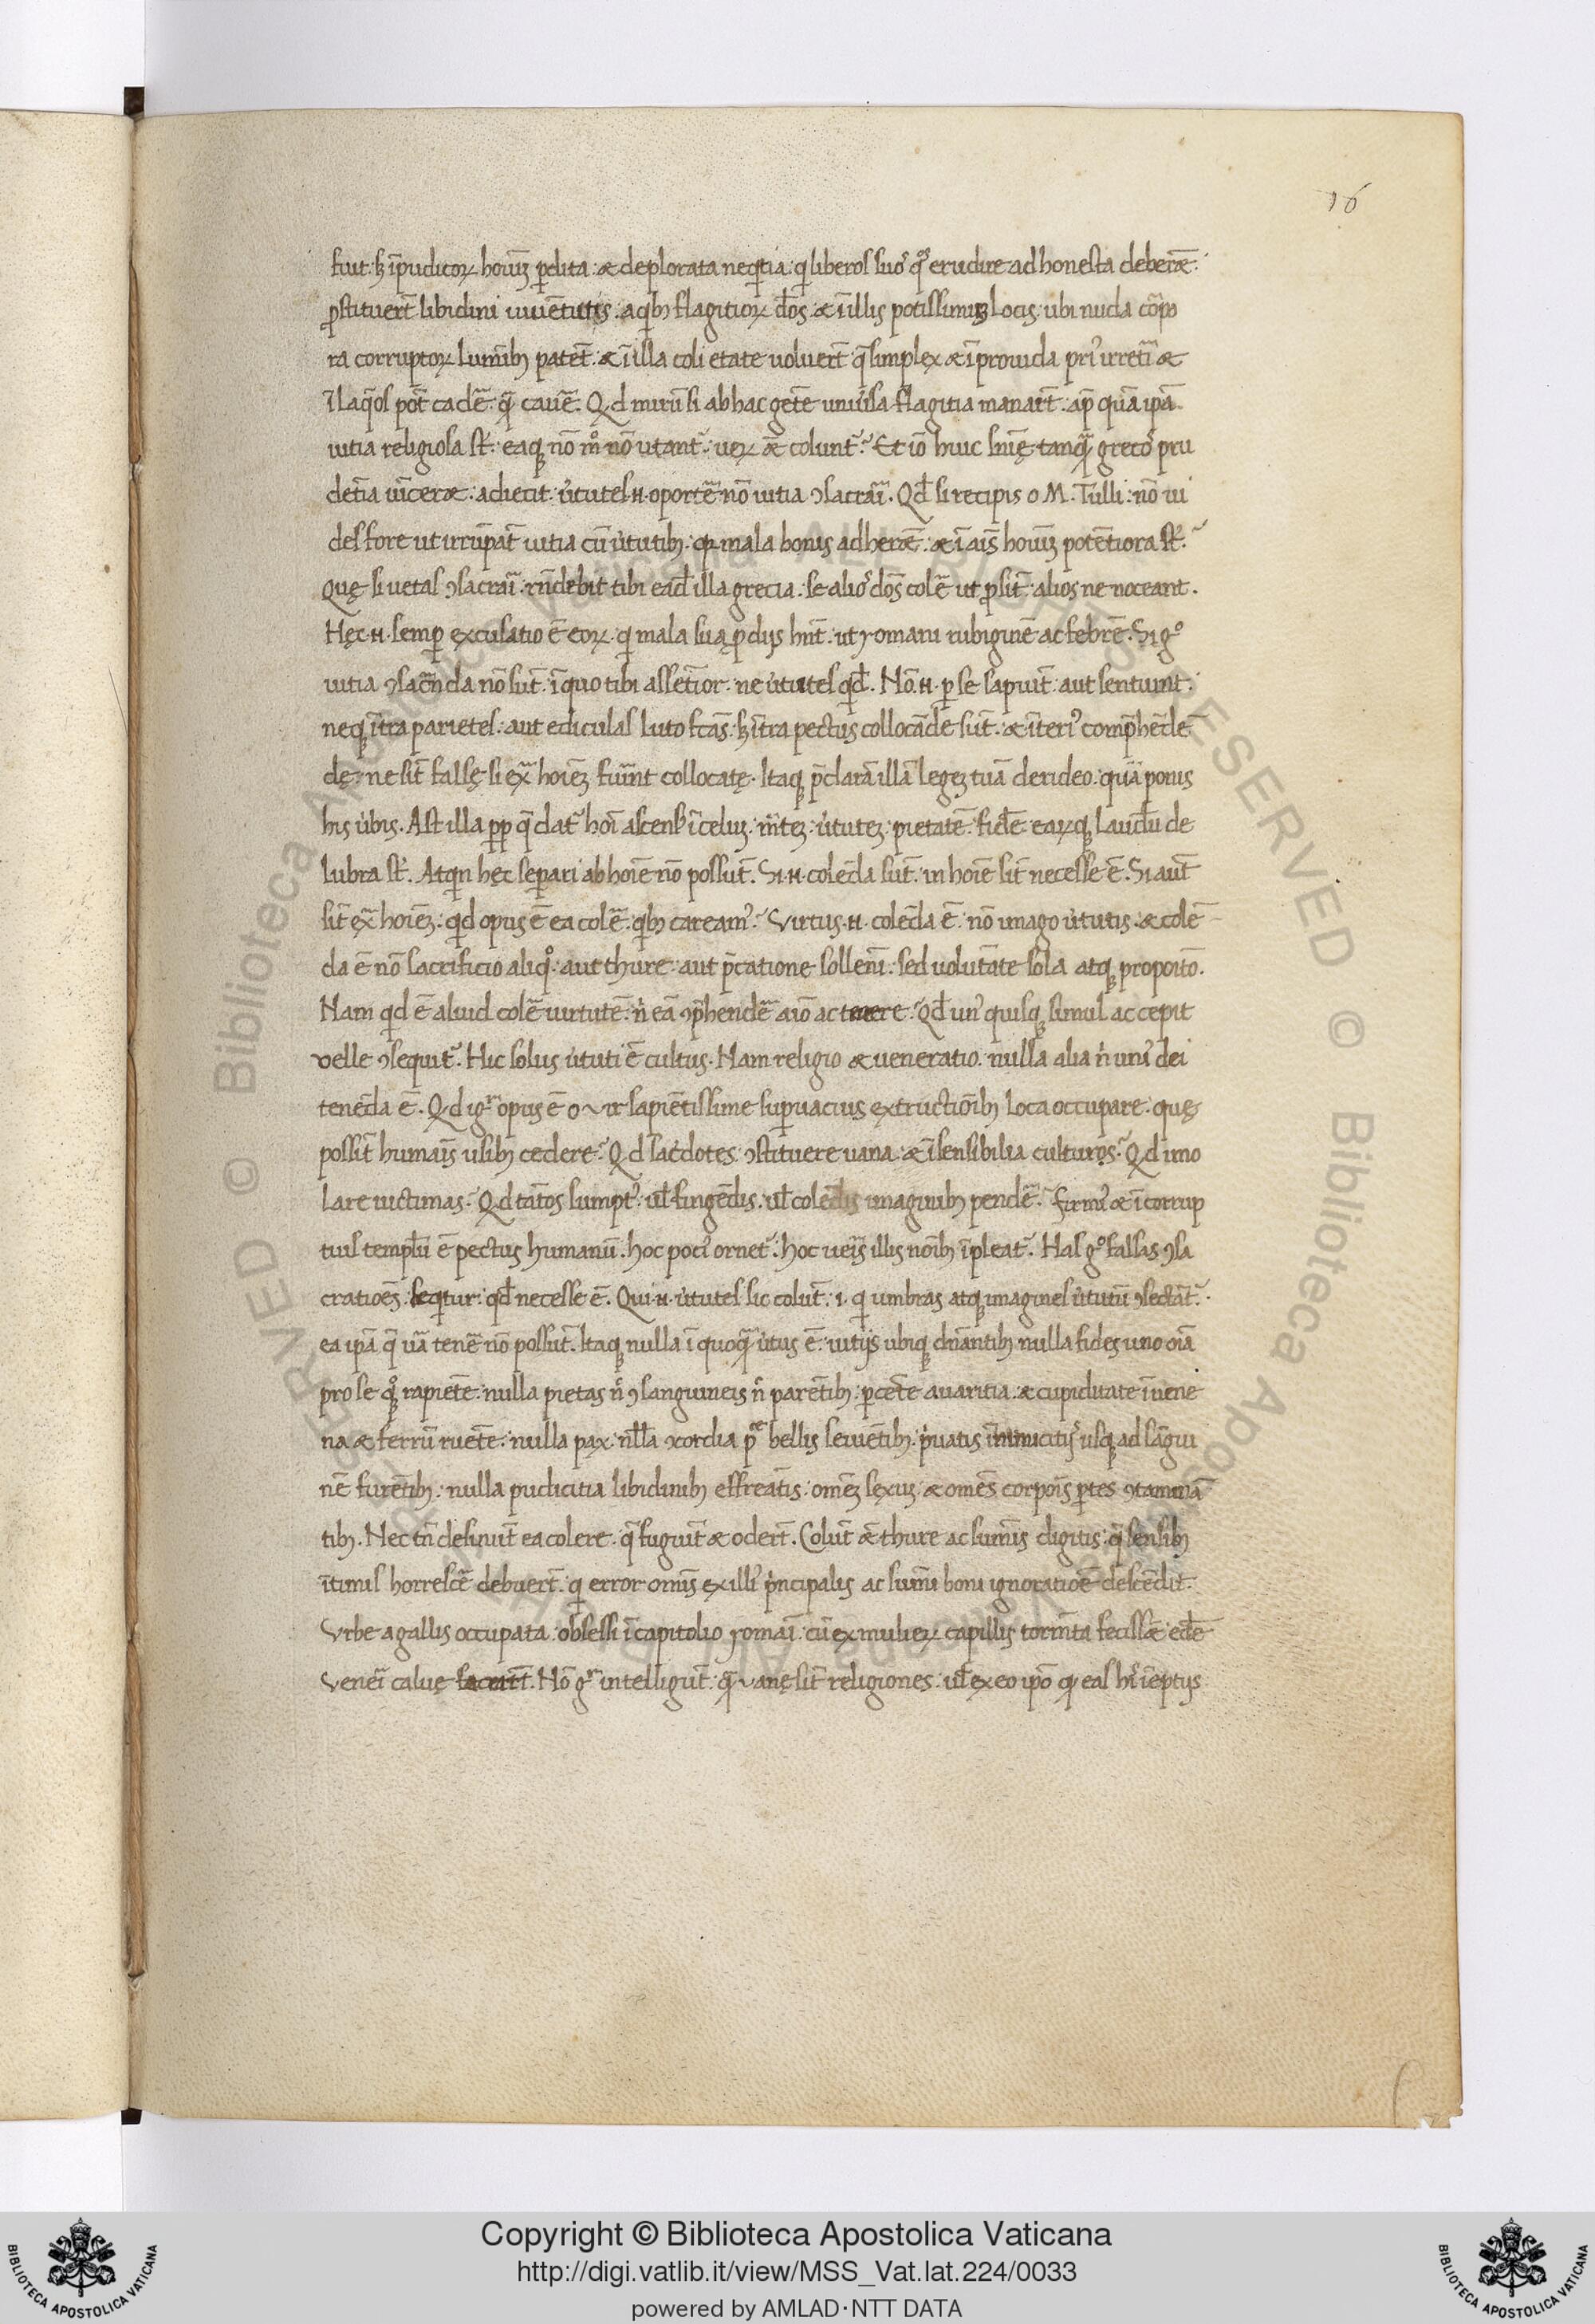 16
fuit. s; īpudicoꝝ hoiuꝫ ꝑdita. & deplorata neq̇tia. qͥ liberos suoˢ qͦs erudire ad honesta deberēt.
ꝓstituerт̄ libidini iuuētutis. a qͥbꝫ flagitioꝝ d̄os. & ī illis potissimuꝫ locis. ubi nuda cōpo
ra corruptoꝝ luminibꝫ patēt. & ī illa coli etate uoluerт̄ q̄ simplex & īprouida priˢ irretiri &
ī laq̄os pōt cadē. q̄ȝ cauē. Qd mirū si ab hac gēte uniu̓sa flagitia manarт̄. ap̄ quā ipā
uitia religiosa st̄. eaqꝫ nō mͦ nō uitant᷑. ueꝝ &̄ colunt᷑. Et iō huic sniē tanq̄ȝ grecoˢ pru
dētia uīceret. adiecit. u̓tutes .n. oportē nō uitia ꝯsacrari. Qd̄ si recipis o M. Tulli. nō ui
des fore ut irrūpāt uitia cū u̓tutibꝫ. qꝛ mala bonis adherēt. & ī ais̄ hoiuꝫ potētiora st̄.
Quę si uetas ꝯsacrari. rn̄debit tibi ead̄ illa grecia. se alioˢ dōs colē ut ꝓsit̄. alios ne noceant.
Hęc .n. semꝑ excusatio ē eoꝝ. qͥ mala sua ꝓ dijs hn̄t. ut romani rubiginē ac febrē. Si gͦ
uitia ꝯsacrāda nō sūt. ī quo tibi assētior. ne u̓tutes qͥd̄. Nō .n. ꝑ se sapiūt. aut sentiunt.
neqꝫ īтra parietes. aut ediculas luto fcās. s; īтra pectus collocāde sūt. & īteriˢ comp̄hēde
dę. ne sīt falsę si ex̄ hoieꝫ fuerint collocatę. Itaqꝫ p̄clarā illā legeꝫ tuā derideo. quā ponis
his u̓bis. Ast illa ꝓp q̄ dat᷑ hoi ascensˢ ī celuꝫ. mēteꝫ. u̓tuteꝫ. pietatē. fidē. earꝫqꝫ laudū de
lubra st̄. Atqͥn hęc seꝑari ab hoie nō possūt. Si .n. colēda sūt. in hoie sīt necesse ē. Si aūt
sīt ex̄ hoieꝫ. qͥd opus ē ea colē. qͥbꝫ careamˢ. Virtus .n. colēda ē. nō imago u̓tutis. & colē
da ē nō sacrificio aliqͦ. aut thure. aut p̄catione sollēni. sed uolūtate sola atqꝫ proposito.
Nam qͥd ē aliud colē uirtutē. nͥ eā ꝯp̄hendē aiō ac tenere. Qd̄ unˢ quisqꝫ simul ac cepit
velle ꝯsequit᷑. Hic solus u̓tuti ē cultus. Nam religio & ueneratio. nulla alia nͥ uniˢ dei
tenēda ē. Qd igr̄ opus ē o uir sapiētissime suꝑuacuis extructioībꝫ loca occupare. quę
possīt humais̄ usibꝫ cedere. Qd sacdotes ꝯstituere uana & īsensibilia culturos. Qd imo
lare uictimas. Qd tātos sumptˢ. ul̄ fingēdis. ul̄ colēdis imaginibꝫ pendē. Firmiˢ & īcorrup
tius templū ē pectus humanū. hoc pociˢ ornet᷑. hoc ueris illis noībꝫ īpleat᷑. Has gͦ falsas ꝯsa
cratiōes seqͥtur. qd̄ necesse ē. Qui .n. u̓tutes sic colūt. .i. qͥ umbras atqꝫ imagines u̓tutū ꝯsectāt᷑.
ea ipā q̄ u̓a tenē nō possūt. Itaqꝫ nulla ī quoq̄ȝ u̓tus ē. uitijs ubiqꝫ dn̄antibꝫ nulla fides uno oīa
pro se qͦqꝫ rapiēte. nulla pietas nͨ ꝯsanguineis nͨ parētibꝫ. ꝑcēte auaritia. & cupiditate ī uene
na & ferrū ruēte. nulla pax. nll̄a ꝯcordia pͬe bellis seuiētibꝫ. pͥuatis inimicitijˢ usqꝫ ad sāgui
nē furētibꝫ. nulla pudicitia libidinibꝫ effreatis. omēꝫ sexuꝫ & omēs corpois̄ ꝑtes ꝯtaminā
tibꝫ. Nec tn̄ desinūt ea colere. q̄ fugiūt & oderт̄. Colūt &̄ thure ac sumis̄ digitis. q̄ sensibꝫ
ītimis horrescē debuerт̄. qͥ error omīs ex illiˢ pͥncipalis ac sumi boni ignoratiōe descēdit.
Vrbe a gallis occupata. obsessi ī capitolio romai. cū ex mulieꝝ capillis tormīta fecissēt edē
veneri caluę sacraт̄т̄. Nō gͬ intelligūt. q̄ȝ vanę sīt religiones. ul̄ ex eo ipō qͩ eas hiˢ īeptijs
Copyright © Biblioteca Apostolica Vaticana
http://digi.vatlib.it/view/MSS_Vat.lat.224/0033
powered by AMLAD·NTT DATA